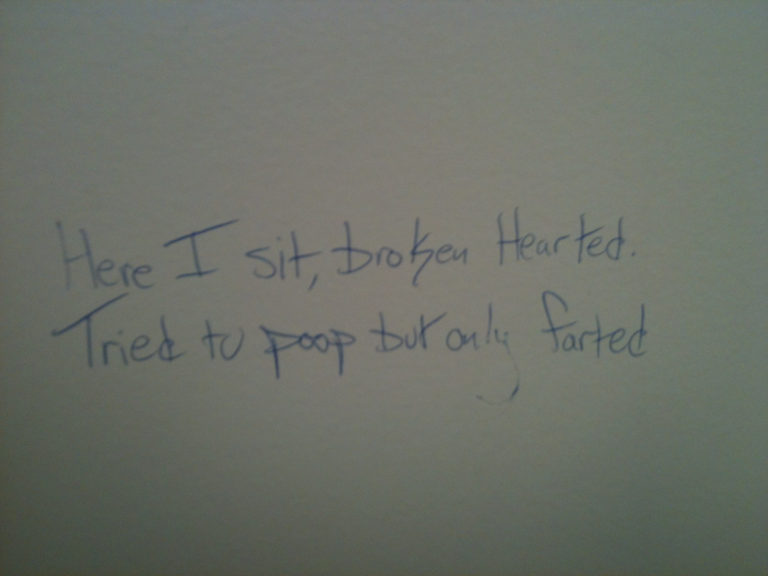 Here I sit, broken Hearted.
Tried to poop but only farted